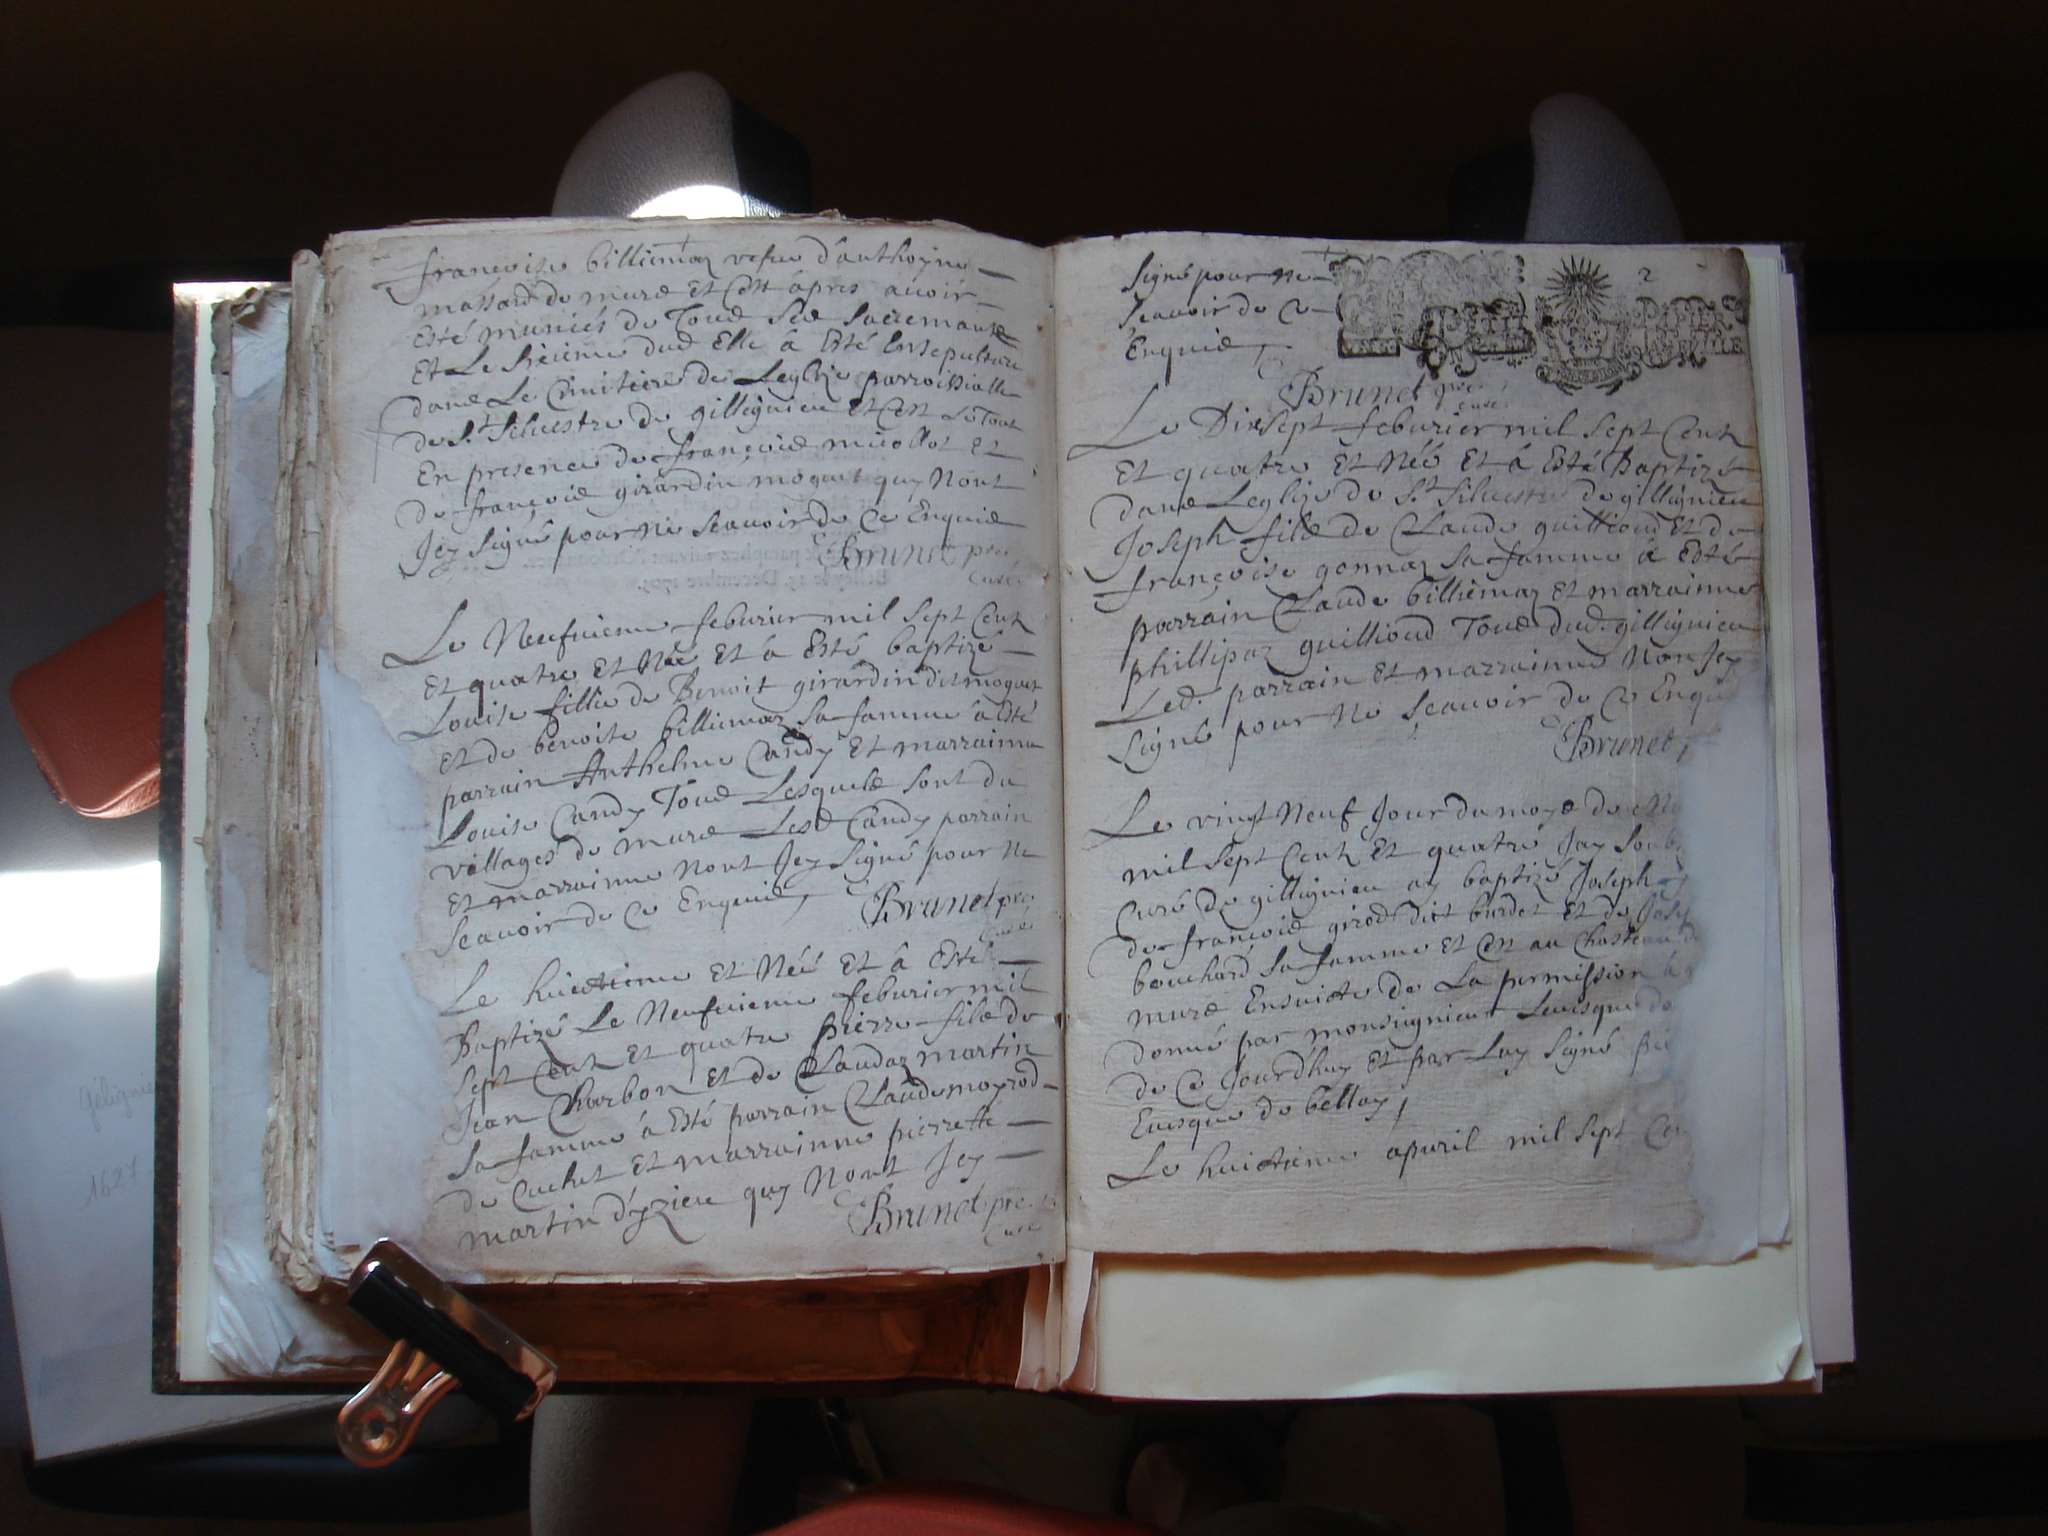 françoise billiemaz vefve d'anthoyne
massard de murs et c'est apres avoir
Esté muniés de Tous Ses Sacremants
Et Le dud Elle à Esté Ensepulture
dans Le Cimitiere de Leglize parroissialle
de St Silvestre de gillignieu et C'est Le Tout
En presence de françois miollot et
de françois girardin moquet quy Nont
Jcy Signé pour Ne Scavoir de Ce Enquis
Brunet pre
curé
Le Neufvieme feburier mil Sept Cent
Et quatre Et Née Et à Esté baptizé
Louise fillie de Benoit girardin dit moquet
et de benoite billiemaz Sa famme à Esté
parrain Anthelme Candy Et marrainne
Louise Candy Tous Lesquels sont du
villages de murs Lesd Candy parrain
et marrainne Nont Jcy Signé pour Ne
Scavoir de Ce Enquis
Brunet pre
curé
Le huictieme et Néé et à Esté
Baptizé Le Neufvieme feburier mil
Sept Cent Et quatre pierre fils de
Jean Charbon et de Claudaz martin
Sa famme à Esté parrain Claude moyrod
de Cuchet Et marrainne pierrette
martin d'yzieu quy Nont Jcy
Brunet pre
curé
Signé pour Ne
Scavoir de Ce
Enquis
2
Brunet pre
curé
Le Dixsept feburier mil Sept Cent
Et quatre et Néé Et à Esté Baptizé
dans Leglize de St Silvestre de gillignieu
Joseph fils de Claude guillioud Et de
françoise gonnaz Sa famme à Esté
parrain Claude billiemaz Et marrainne
phillipaz guillioud Tous dud. gillignieu
Led. parrain et marrainne Non Jcy
Signé pour Ne Scavoir de Ce Enqui
Brunet
Le vingt Neuf Jour du moys de
mil Sept Cent Et quatre Jay Soub
Curé de gillignieu ay baptizé Joseph
de françois girod dit burdet et de Jos
bouchard Sa famme et C'est au Chasteau de
murs Ensuitte de La permission
donné par monseignieur Levesque de
de Ce Jourdhuy et par Luy Signé
Evesque de bellay
Le huictieme apvril mil Sept Cen